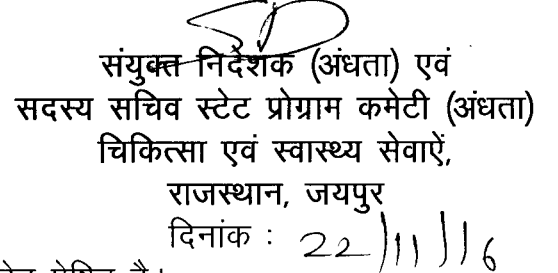 संयुक्त निदेशक (अंधता) एवं
सदस्य सचिव स्टेट प्रोग्राम कमेटी (अंधता)
चिकित्सा एवं स्वास्थ्य सेवाऐं,
राजस्थान, जयपुर
दिनांक : 22/11/16
है।